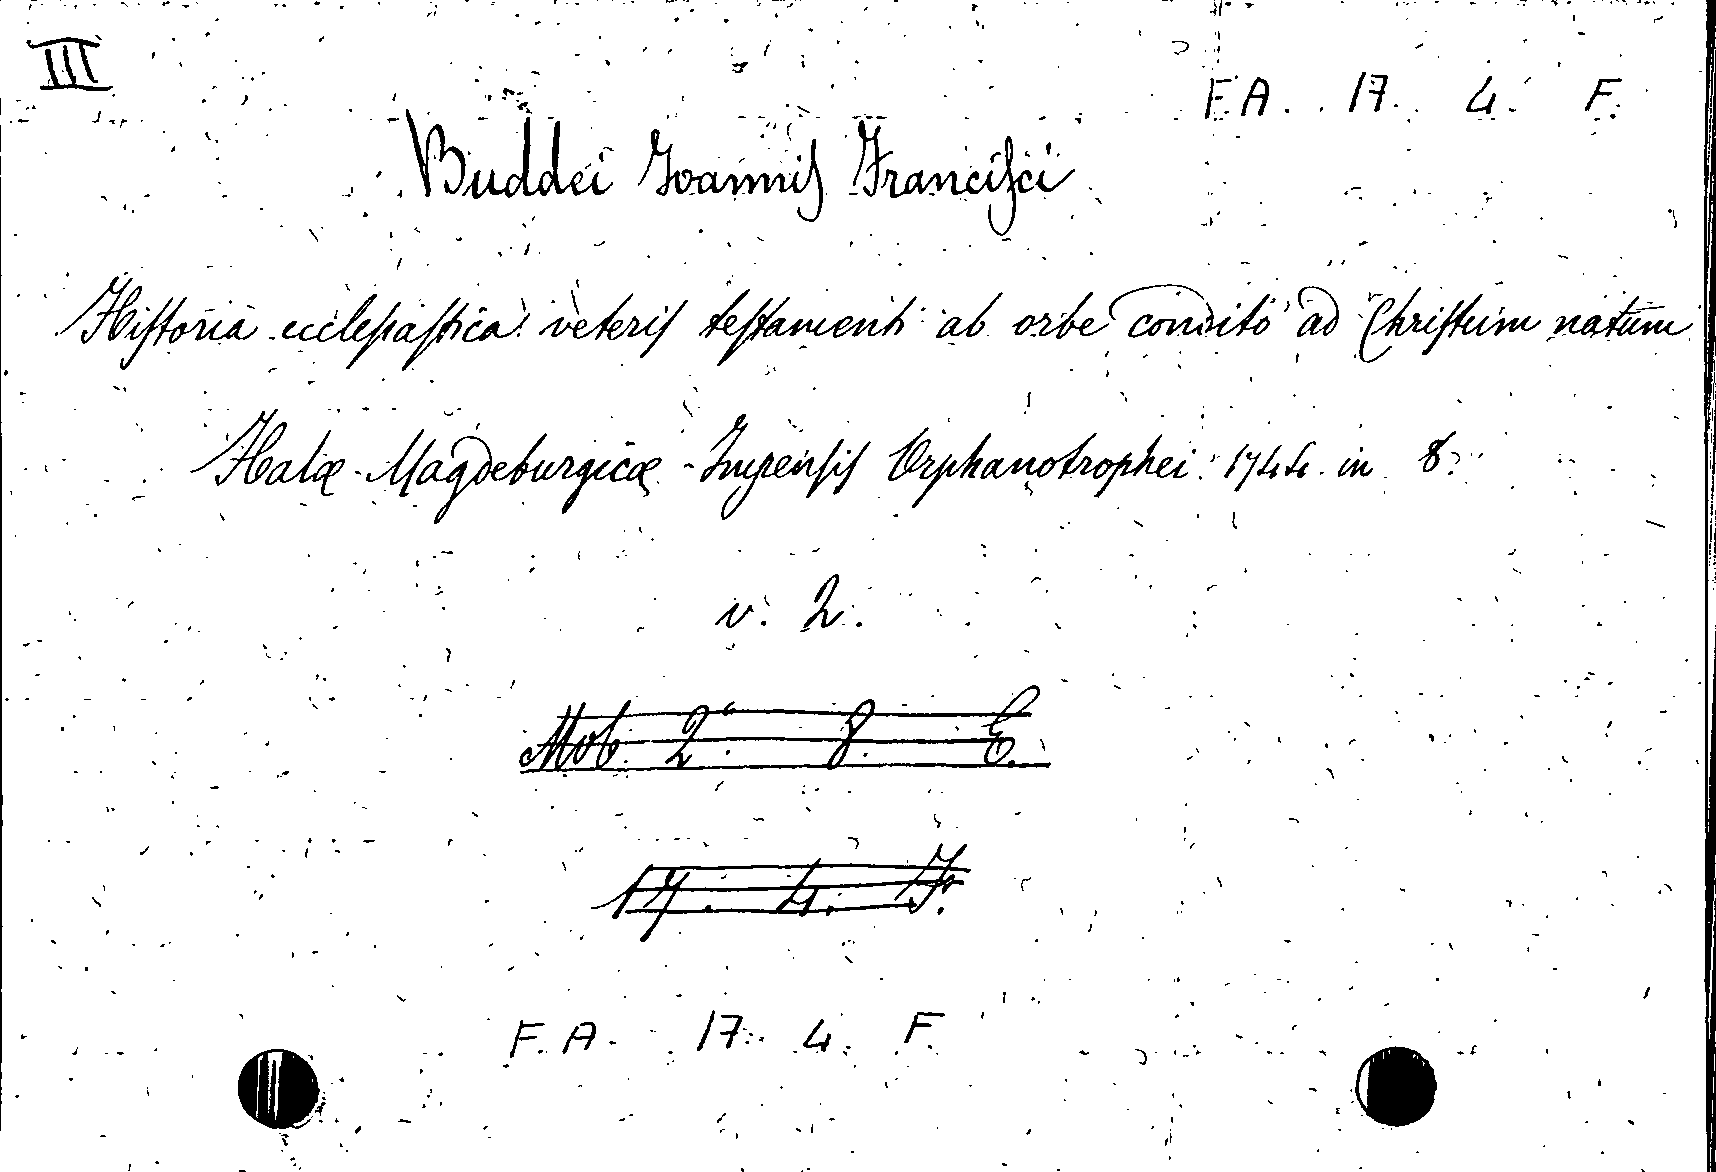 III
F. A. 17. 4. F.
Buddei Ioannis Francisci
Historia ecclesiastica veteris testamenti ab orbe condito ad Christum natum
Halæ Magdeburgicæ - Impensis Orphanotrophei 1744 in 8.
v. 2.
Mob. 2.° 8. E.
17. 4. F.
F. A. 17. 4. F.